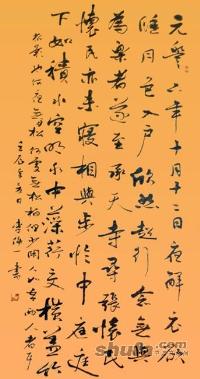 元豐六年十月十二日夜解衣欲
睡月色入户欣然起行念無與
為樂者遂至承天寺尋張懷民
懷民亦未寢相與步於中庭庭
下如積水空明水中藻荇交橫蓋竹
柏影也何夜無月何處無松柏但少閑人如吾兩人者耳
壬辰年